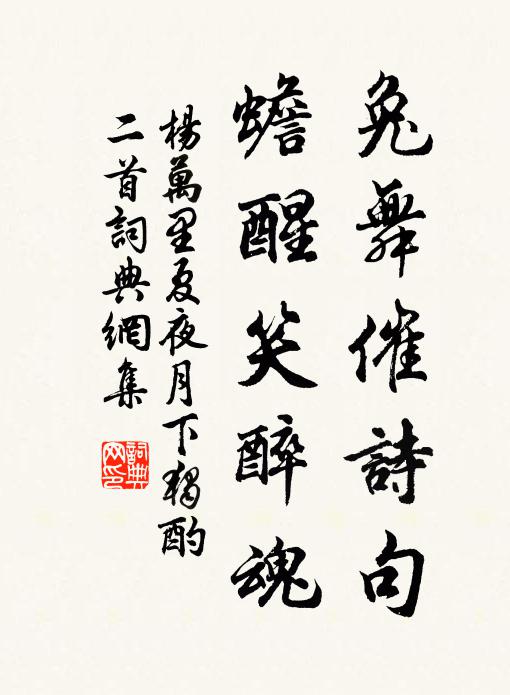 兔舞催詩句
蟾醒笑醉魂
楊萬里夏夜月下獨酌
二首詞典網集
詞典網印